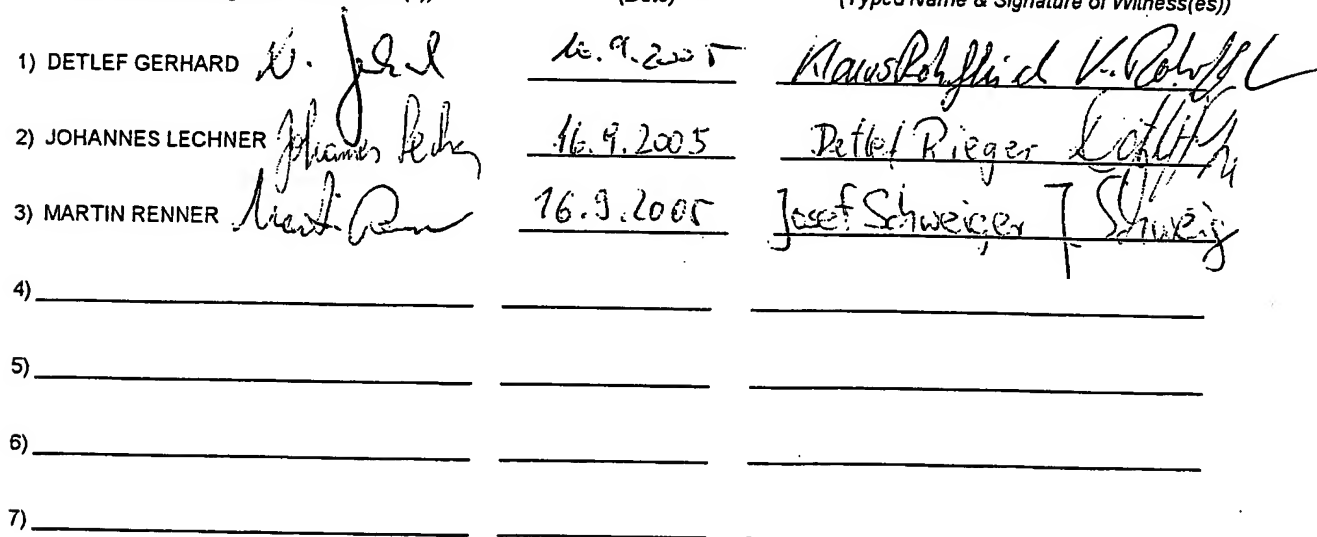 (Date) (Typed Name & Signature of Witness(es))
1) DETLEF GERHARD 16.9.2005 Klaus
2) JOHANNES LECHNER Johannes Lechner 16.9.2005 Detlef Rieger
3) MARTIN RENNER Martin Renner 16.9.2005 Josef Schweiger J Schweig
4)
5)
6)
7)